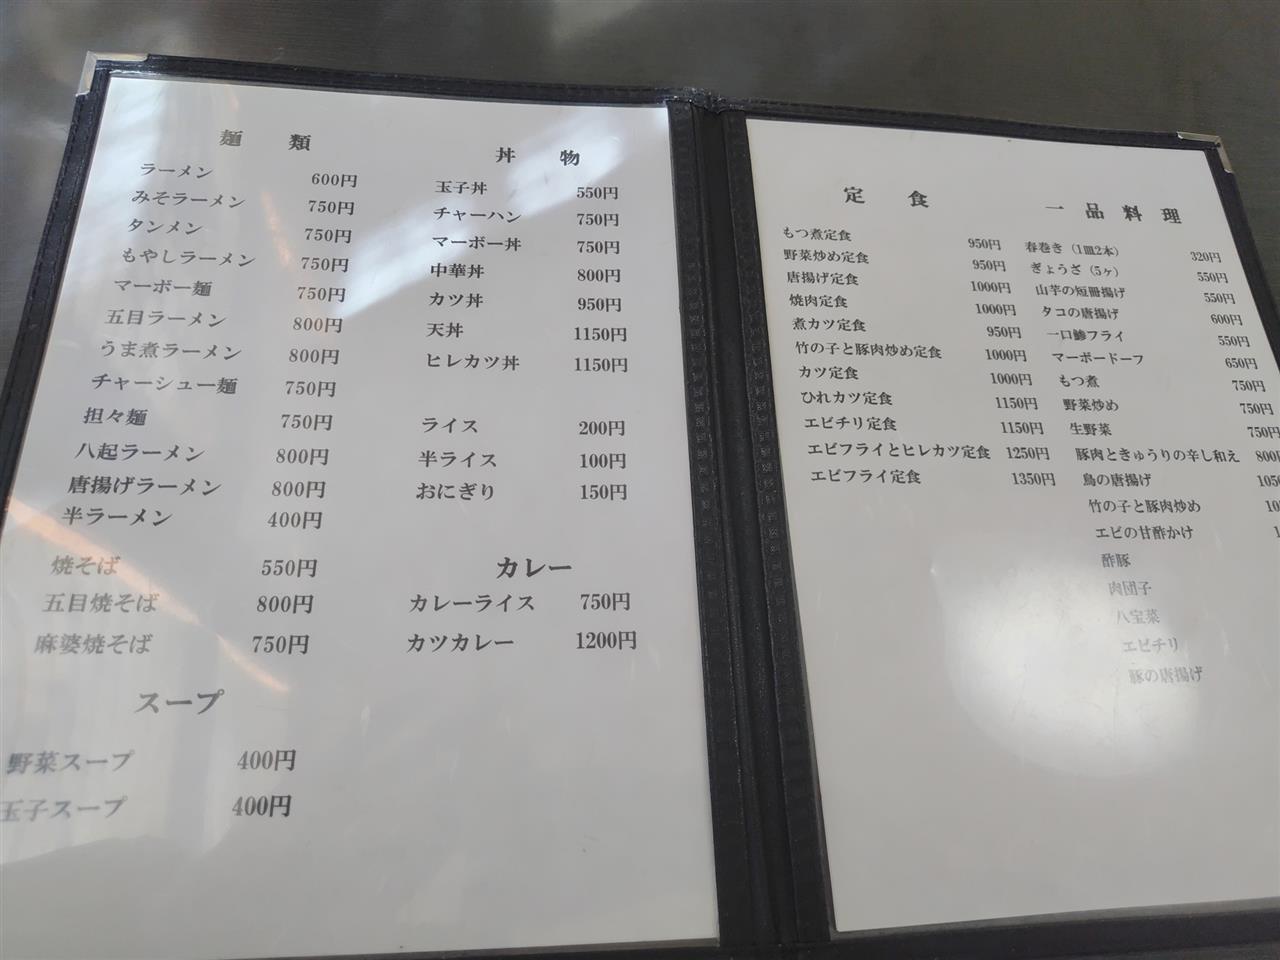 麺 類
ラーメン 600円
みそラーメン 750円
タンメン 750円
もやしラーメン 750円
マーボー麺 750円
五目ラーメン 800円
うま煮ラーメン 800円
チャーシュー麺 750円
担々麺 750円
八起ラーメン 800円
唐揚げラーメン 800円
半ラーメン 400円
焼そば 550円
五目焼そば 800円
麻婆焼そば 750円
スープ
野菜スープ 400円
玉子スープ 400円
丼 物
玉子丼 550円
チャーハン 750円
マーボー丼 750円
中華丼 800円
カツ丼 950円
天丼 1150円
ヒレカツ丼 1150円
ライス 200円
半ライス 100円
おにぎり 150円
カレー
カレーライス 750円
カツカレー 1200円
定 食
もつ煮定食 950円
野菜炒め定食 950円
唐揚げ定食 1000円
焼肉定食 1000円
煮カツ定食 950円
竹の子と豚肉炒め定食 1000円
カツ定食 1000円
ひれカツ定食 1150円
エビチリ定食 1150円
エビフライとヒレカツ定食 1250円
エビフライ定食 1350円
一 品 料 理
春巻き（1皿2本） 320円
ぎょうざ（5ヶ） 550円
山芋の短冊揚げ 550円
タコの唐揚げ 600円
一口鯵フライ 550円
マーボードーフ 650円
もつ煮 750円
野菜炒め 750円
生野菜 750円
豚肉ときゅうりの辛し和え 800円
鳥の唐揚げ
竹の子と豚肉炒め
エビの甘酢かけ
酢豚
肉団子
八宝菜
エビチリ
豚の唐揚げ